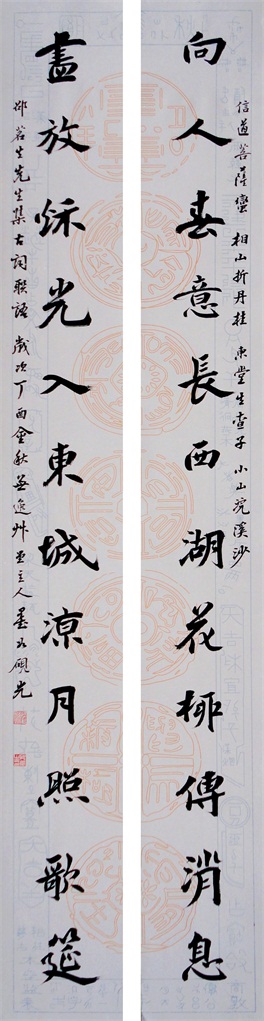 信道菩薩蠻 相山折丹桂 東堂生查子 小山浣溪沙
向人春意長西湖花柳傳消息
盡放秌光入東城涼月照歌筵
邵茗生先生集古詞聯語 歲次丁酉金秋 艸堂主人